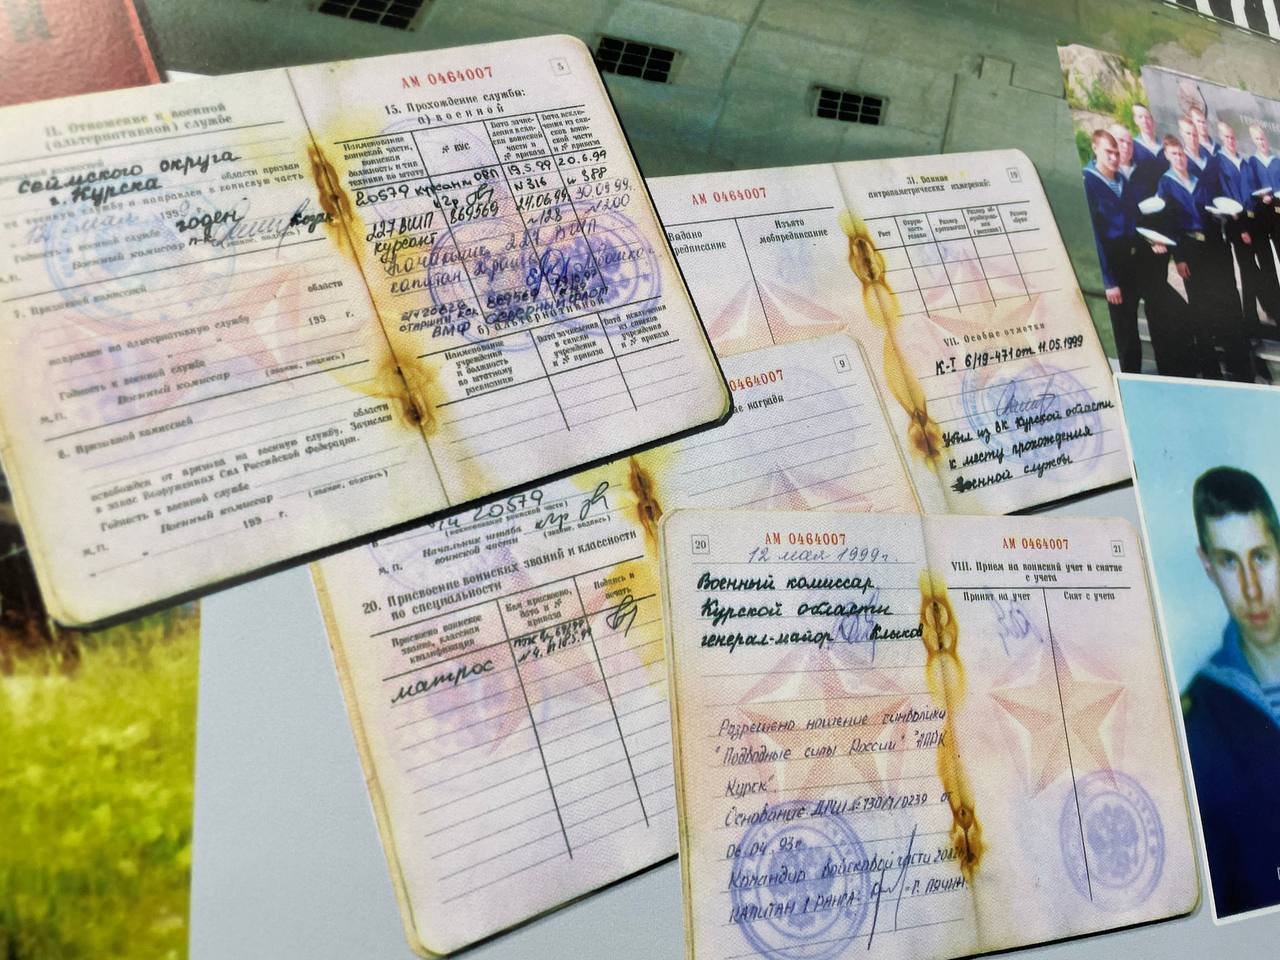 АМ 0464007
5
11. Отношение к военной
(альтернативной) службе
сеймского округа
г. Курска
области призван
на военную службу и направлен в воинскую часть
199
годен
Годность к военной службе
Военный комиссар
(звание, подпись)
м.п.
7. Призывной комиссией
области
199 г.
направлен на альтернативную службу
Годность к военной службе
Военный комиссар
(звание, подпись)
м.п.
8. Призывной комиссией
области
освобожден от призыва на военную службу. Зачислен
в запас Вооруженных Сил Российской Федерации.
Годность к военной службе
Военный комиссар
(звание, подпись)
м.п.
199 г.
15. Прохождение службы:
а) военной
Наименование воинской части, воинская должность и тип техники по штату
№ ВУС
Дата зачисления в списки воинской части и № приказа
Дата исключения из списков воинской части и № приказа
20579 курсант
19.5.99
20.6.99
N 316
N 388
227 ВШП
869569
24.06.99
30.09.99
курсант
N 128
начальник 227 ВШП
капитан
869569
ВМФ Северный флот
б) альтернативной
Наименование учреждения и должность по штатному расписанию
Дата зачисления в списки учреждения и № приказа
Дата исключения из списков учреждения и № приказа
АМ 0464007
19
Выдано
мобпредписание
Изъято
мобпредписание
31. Данные
антропометрических измерений:
Рост
Окружность головы
Размер противогаза
Размер обмундирования (росовка)
Размер обуви
VII. Особые отметки
К-I 6/19-471 от 11.05.1999
Убыл из ВК Курской области
к месту прохождения
военной службы
0464007
9
награда
20579
(наименование воинской части)
Начальник штаба
воинской части
(звание, подпись)
м. п.
20. Присвоение воинских званий и классности
по специальности
Присвоено воинское звание, классная квалификация
Кем присвоено, дата и № приказа
Подпись и печать
матрос
20
АМ 0464007
12 мая 1999г.
Военный комиссар
Курской области
генерал-майор Клыков
Разрешено ношение символики
"Подводные силы России" "АПРК
Курск"
Основание ДГШ № 730/1/0239 от
06.04.93г
Командир войсковой части
капитан 1 ранга
АМ 0464007
21
VIII. Прием на воинский учет и снятие
с учета
Принят на учет
Снят с учета